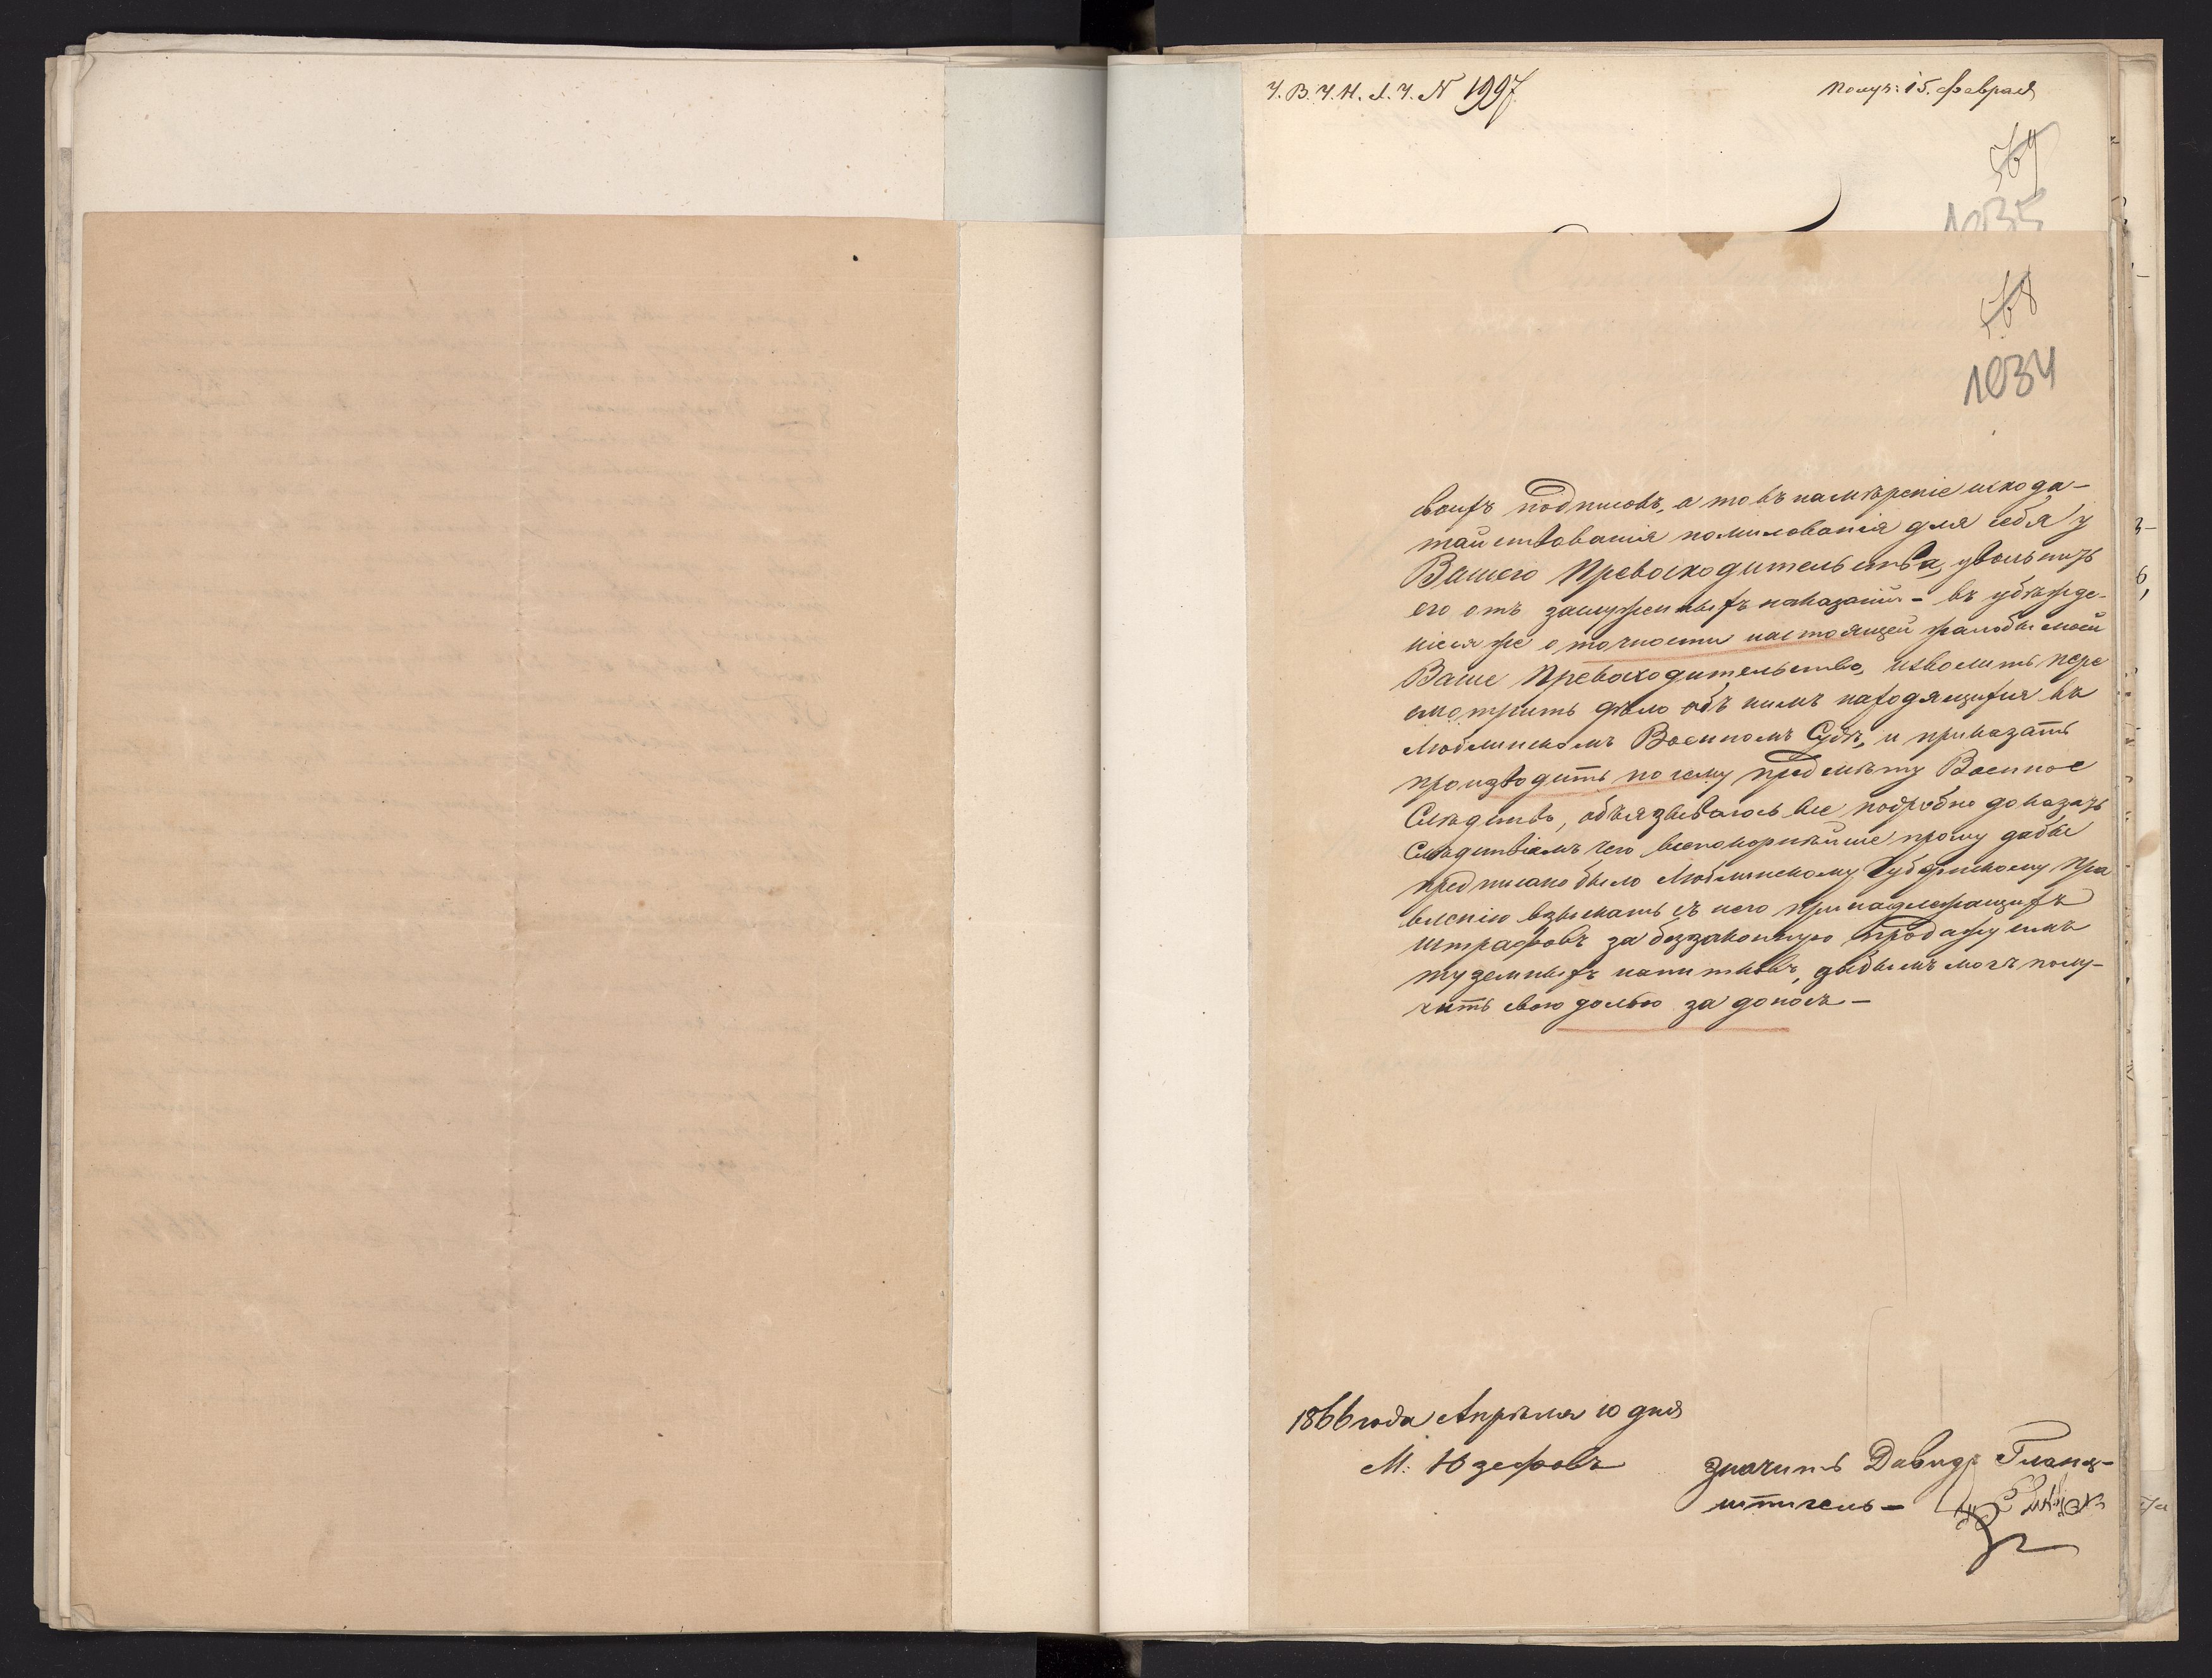 Ч. В. Ч. Н. Л. Ч. № 1997
Получ: 15. февраля
569
1035
568
1034
своихъ подписовъ, а то въ намѣреніе исхода-
тайствованія помилованія для себя у
Вашего Превосходительства, уволнить
его отъ заслуженныхъ наказаній - въ убѣжде-
ніеся же о точности настоящей жалобы моей
Ваше Превосходительство, изволить пере
смотрить дѣло объ нимъ находящихся въ
Люблинскомъ Военномъ Судѣ, и приказать
производить по сему предмѣту Военное
Слѣдство, объязываюсь все подробно доказать
Слѣдствіемъ чего всепокорнѣйше прошу дабы
предписано было Люблинскому Губернскому Пра
вленію взыскать съ него принадлежащихъ
штрафовъ за беззаконную продажу имъ
туземныхъ напитковъ, дабы емъ могъ полу-
чить свою долю за доносъ -
1866 года Апрѣля 10 дня
М: Юзефовъ
значитъ Давидъ Гланц-
штпигель -